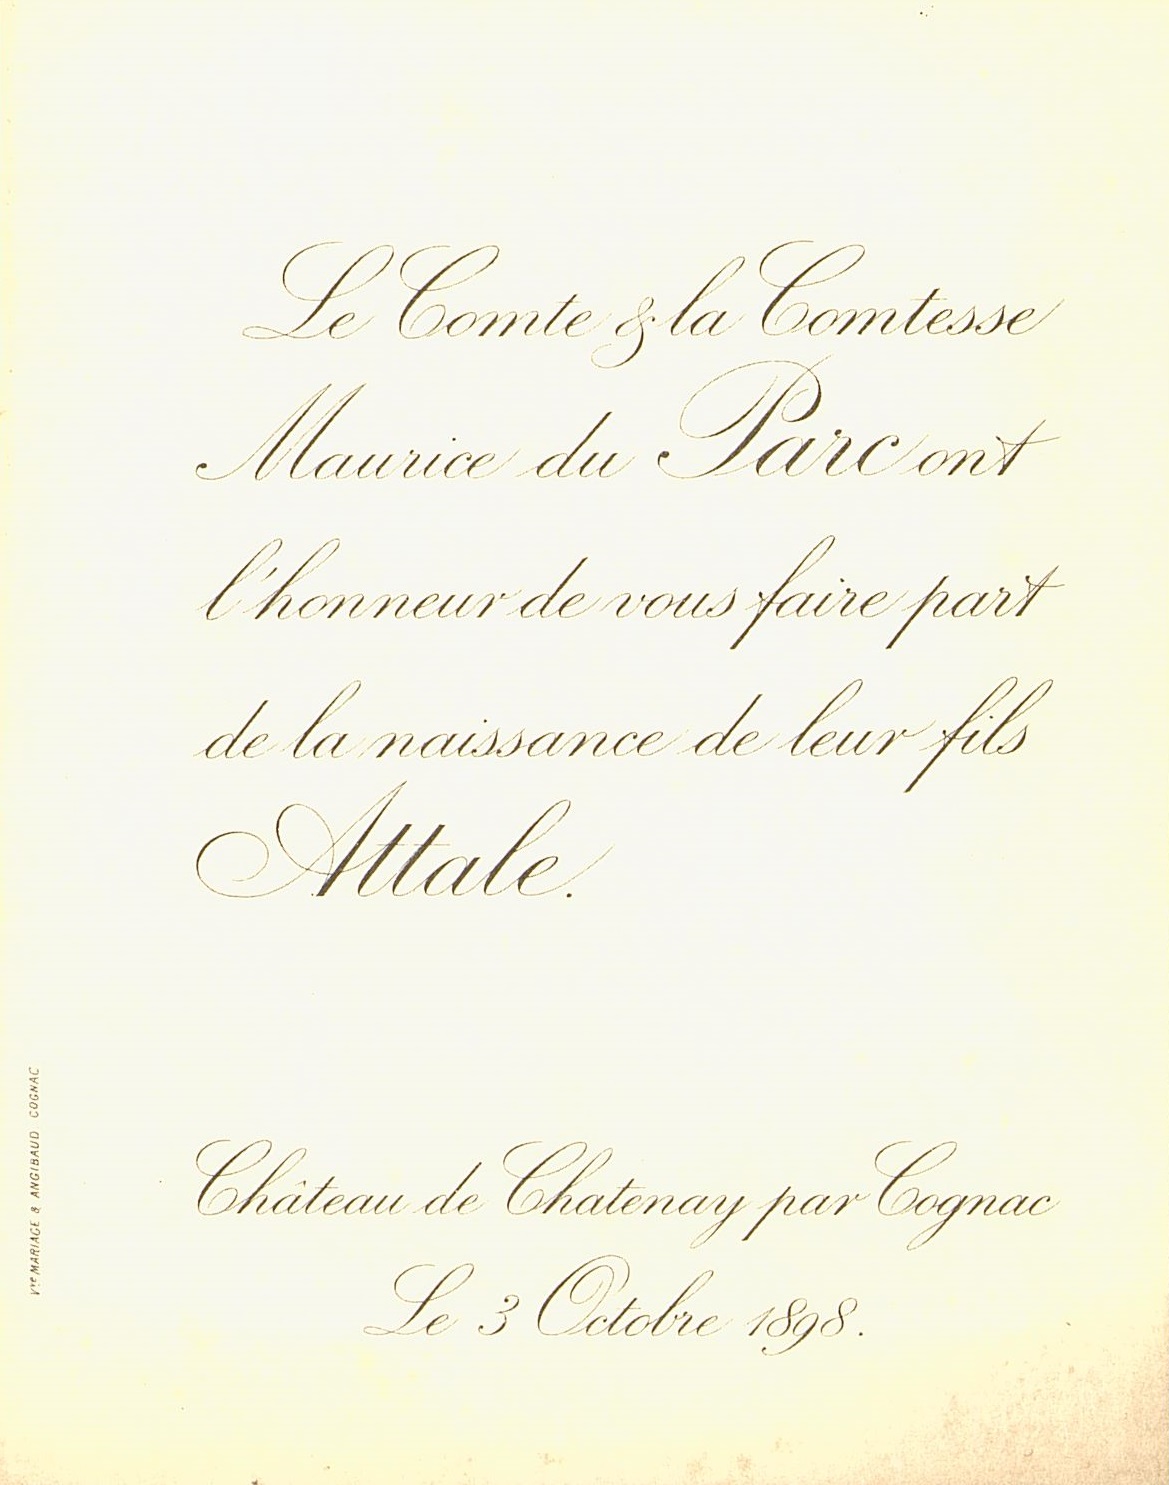 Le Comte & la Comtesse
Maurice du Parc ont
l'honneur de vous faire part
de la naissance de leur fils
Attale.
Château de Chatenay par Cognac
Le 3 Octobre 1898.
Vve MARIAGE & ANGIBAUD COGNAC